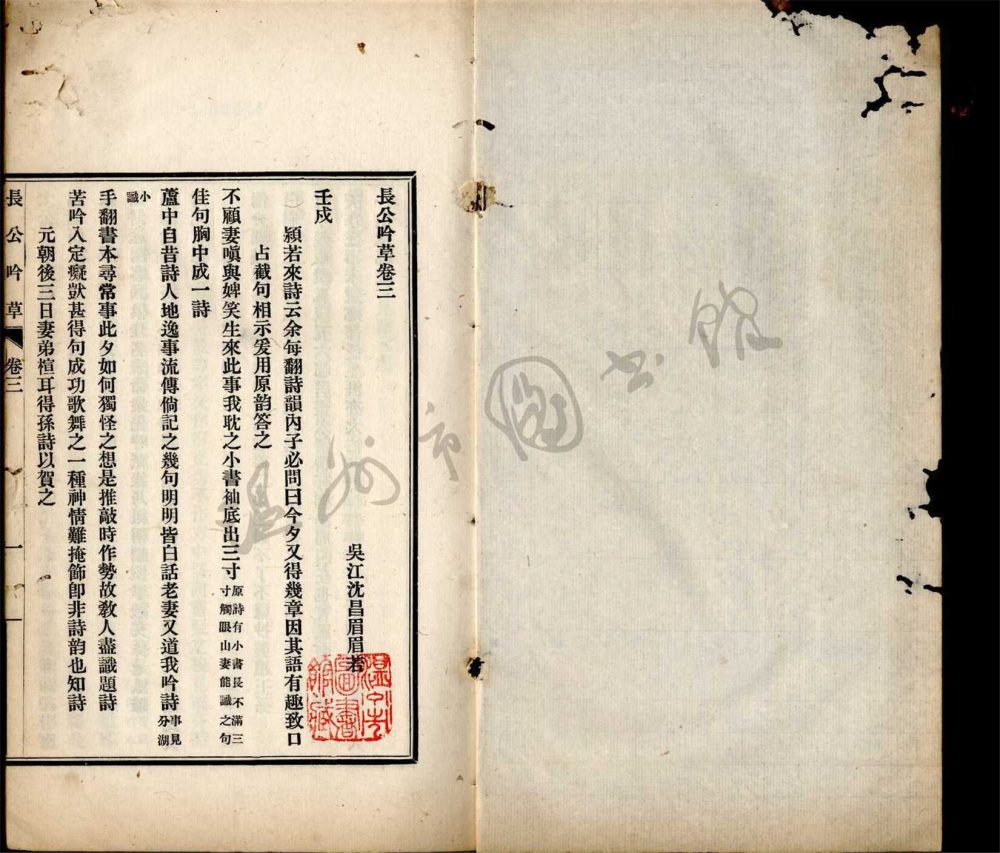 長公吟草卷三
吳江沈昌眉眉若
壬戌
穎若來詩云余每翻詩韻內子必問曰今夕又得幾章因其語有趣致口
占截句相示爰用原韵答之
不顧妻嗔與婢笑生來此事我耽之小書袖底出三寸原詩有小書長不滿三寸觸眼山妻能識之句
佳句胸中成一詩
蘆中自昔詩人地逸事流傳倘記之幾句明明皆白話老妻又道我吟詩事見分湖
小識
手翻書本尋常事此夕如何獨怪之想是推敲時作勢故教人盡識題詩
苦吟入定癡獃甚得句成功歌舞之一種神情難掩飾卽非詩韵也知詩
元朝後三日妻弟楦耳得孫詩以賀之
長公吟草
卷三
一
溫州市圖書館藏
溫州市圖書館